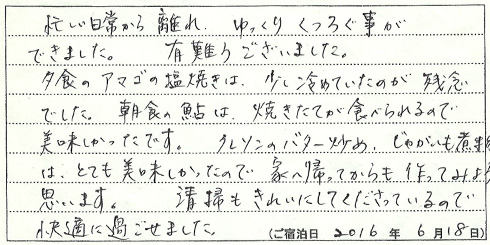 忙しい日常から離れ、ゆっくりくつろぐ事が
できました。 有難うございました。
夕食のアマゴの塩焼きは、少し冷めていたのが残念
でした。朝食の鮎は、焼きたてが食べられるので
美味しかったです。 クレソンのバター炒め、じゃがいも煮物
は、とても美味しかったので家へ帰ってからも作ってみよう
思います。 清掃もきれいにしてくださっているので
快適に過ごせました。 (ご宿泊日 2016 年 6月18日)